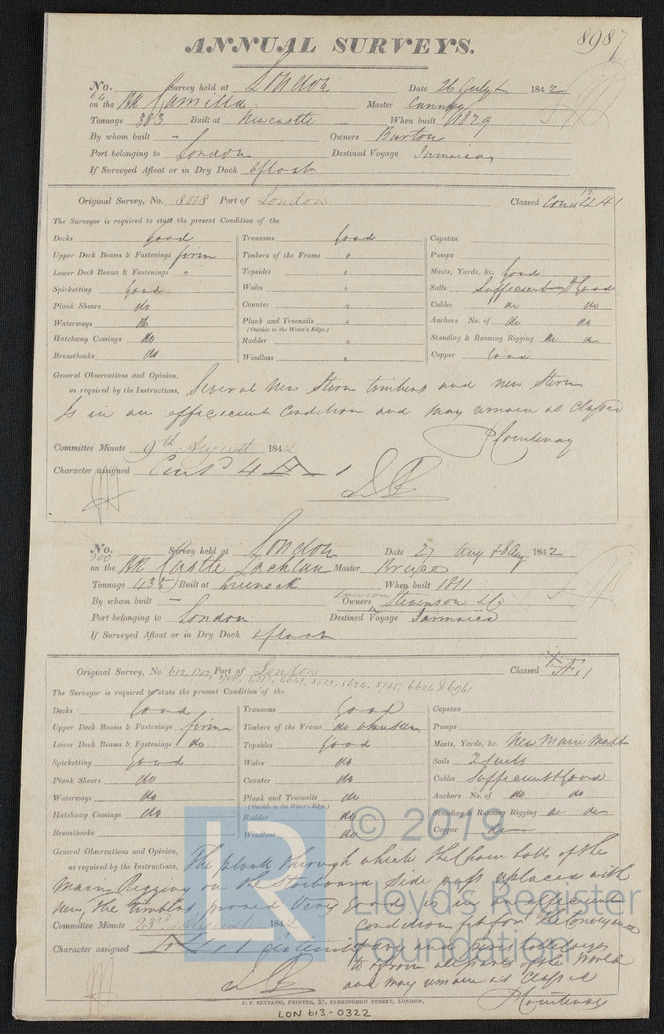 8987
ANNUAL SURVEYS.
No. Survey held at London Date 26 July 1842
on the Bk Camilla Master
Tonnage 383 Built at Newcastle When built 1829
By whom built - Owners Burton
Port belonging to London Destined Voyage Jamaica
If Surveyed Afloat or in Dry Dock afloat
Original Survey, No. 8008 Port of London Classed
The Surveyor is required to state the present Condition of the
Decks good Transoms good Capstan
Upper Deck Beams & Fastenings firm Timbers of the Frame " Pumps
Lower Deck Beams & Fastenings " Topsides " Masts, Yards, &c. good
Spirketting good Wales " Sails Sufficient & Good
Plank Shears do Counter " Cables do do
Waterways do Plank and Treenails " Anchors No. of do do
(Outside to the Water's Edge.)
Hatchway Comings do Rudder " Standing & Running Rigging do do
Breasthooks do Windlass " Copper Good
General Observations and Opinion,
as required by the Instructions, Several new Stern timbers and new Stern
Is in an efficient condition and may remain as classed
P Courtenay
Committee Minute 9th August 1842
Character assigned 1
No. 700 Survey held at London Date 27 1842
on the Bk Castle Lachlan Master Bruce
Tonnage 435 Built at Greenock When built 1811
By whom built - Owners Stevenson &Co
Port belonging to London Destined Voyage Jamaica
If Surveyed Afloat or in Dry Dock afloat
Original Survey, No. Port of London Classed
The Surveyor is required to state the present Condition of the
Decks Good Transoms Good Capstan
Upper Deck Beams & Fastenings firm Timbers of the Frame do Pumps
Lower Deck Beams & Fastenings do Topsides Good Masts, Yards, &c. New Main Mast
Spirketting Good Wales do Sails 2 suits
Plank Shears do Counter do Cables Sufficient & Good
Waterways do Plank and Treenails do Anchors No. of do do
(Outside to the Water's Edge.)
Hatchway Comings do Rudder do Standing & Running Rigging do do
Breasthooks Windlass do Copper
General Observations and Opinion,
as required by the Instructions, The plank through which the Chain bolts of the
Main Rigging on the Starboard side was replaced with
new, the timbers proved very good is in an efficient
Committee Minute 23rd August 1842 condition fit for the Conveyance
Character assigned of dry and
to & from all parts of the World
and may remain as Classed
P Courtenay
© 2019
Lloyd's Register
Foundation
LR
C. F. SEYFANG, PRINTER, 57, FARRINGDON STREET, LONDON.
LON 613-0322